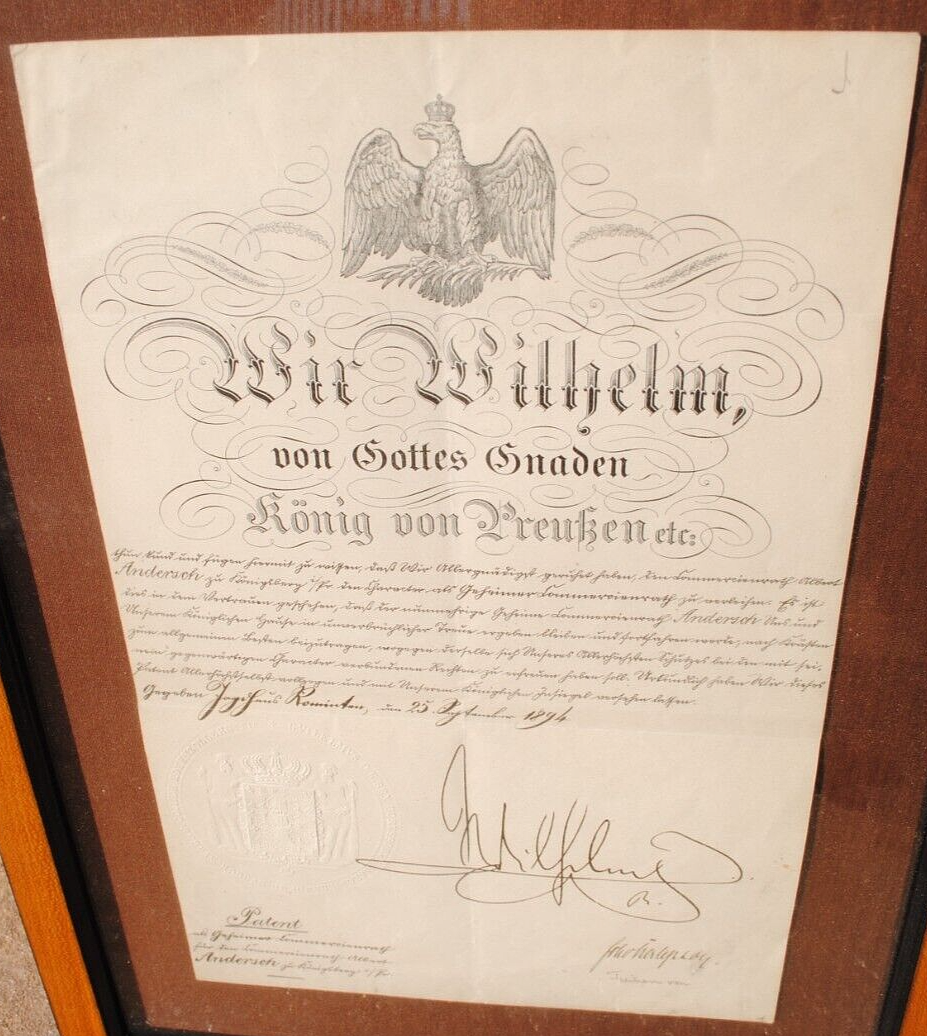 Wir Wilhelm,
von Gottes Gnaden
König von Preußen etc:
thun kund und fügen hiermit zu wissen, daß Wir Allergnädigst geruht haben, den Commercienrath Albert
Andersch zu Königsberg i/Pr den Charakter als Geheimer Commercienrath zu verleihen. Es ist
dies in dem Vertrauen geschehen, daß der nunmehrige Geheime Commercienrath Andersch Uns und
Unserem Königlichen Hause in unverbrüchlicher Treue ergeben bleiben und fortfahren werde, nach Kräften
zum allgemeinen Besten beizutragen, wogegen derselbe sich Unseres Allerhöchsten Schutzes bei den mit sei-
nem gegenwärtigen Charakter verbundenen Rechten zu erfreuen haben soll. Urkundlich haben Wir dieses
Patent Allerhöchstselbst vollzogen und mit Unserem Königlichen Insiegel versehen lassen.
Gegeben Jagdhaus Rominten, den 25 September 1894
Wilhelm
R.
Patent
als Geheimer Commercienrath
für den Commercienrath Albert
Andersch zu Königsberg i/Pr